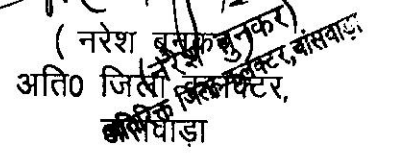 ( नरेश बुनकर )
अति0 जिला कलक्टर,
बांसवाड़ा
(नरेश बुनकर)
अतिरिक्त जिला कलक्टर, बांसवाड़ा